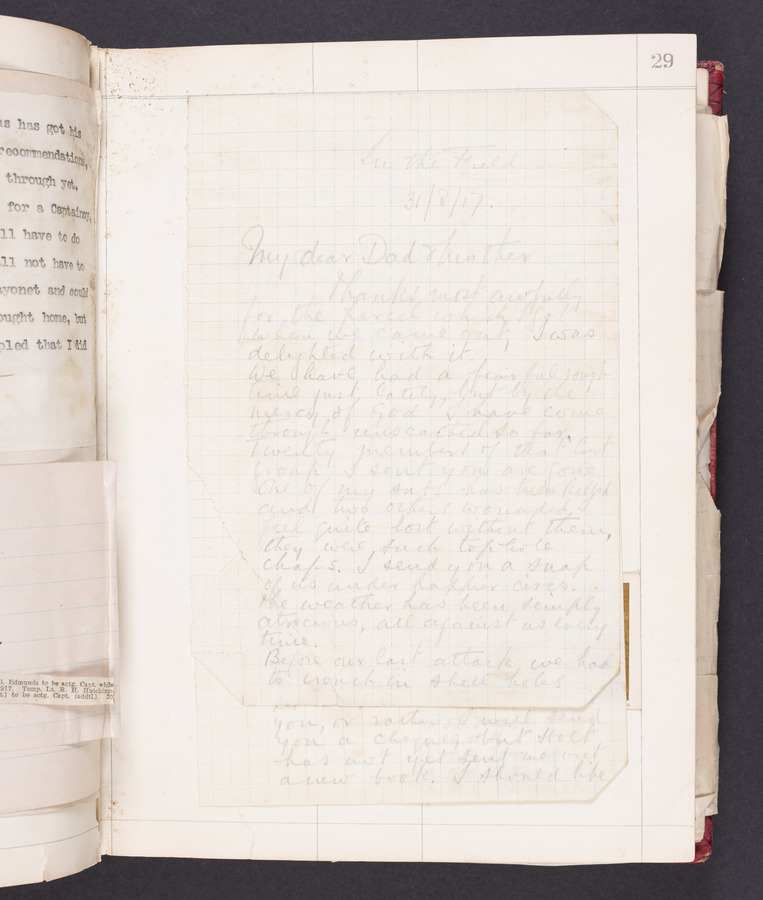 29
as has got his
recommendations,
through yet.
for a Captaincy,
ll have to do
ll not have to
ayonet and could
ought home, but
pled that I did
l. Edmunds to be actg. Capt. while
917. Temp. Lt. R. H. Hutchings
t.) to be actg. Capt. (addtl.). 20
In the Field
31/8/17.
My dear Dad & Mother
Thanks most awfully
for the parcel which I got
when we came out, I was
delighted with it.
We have had a fearful rough
time just lately, but by the
mercy of God I have come
through unscathed so far.
Twenty members of that last
group I sent you are gone
One of my subs has been killed
and two others wounded, I
feel quite lost without them,
they were such tophole
chaps. I send you a snap
of us under happier circs.
The weather has been simply
atrocious, all against us every
time.
Before our last attack we had
to crouch in shell holes
you, or rather, I will send
you a cheque, but Holt
has not yet sent me out
a new book. I should like